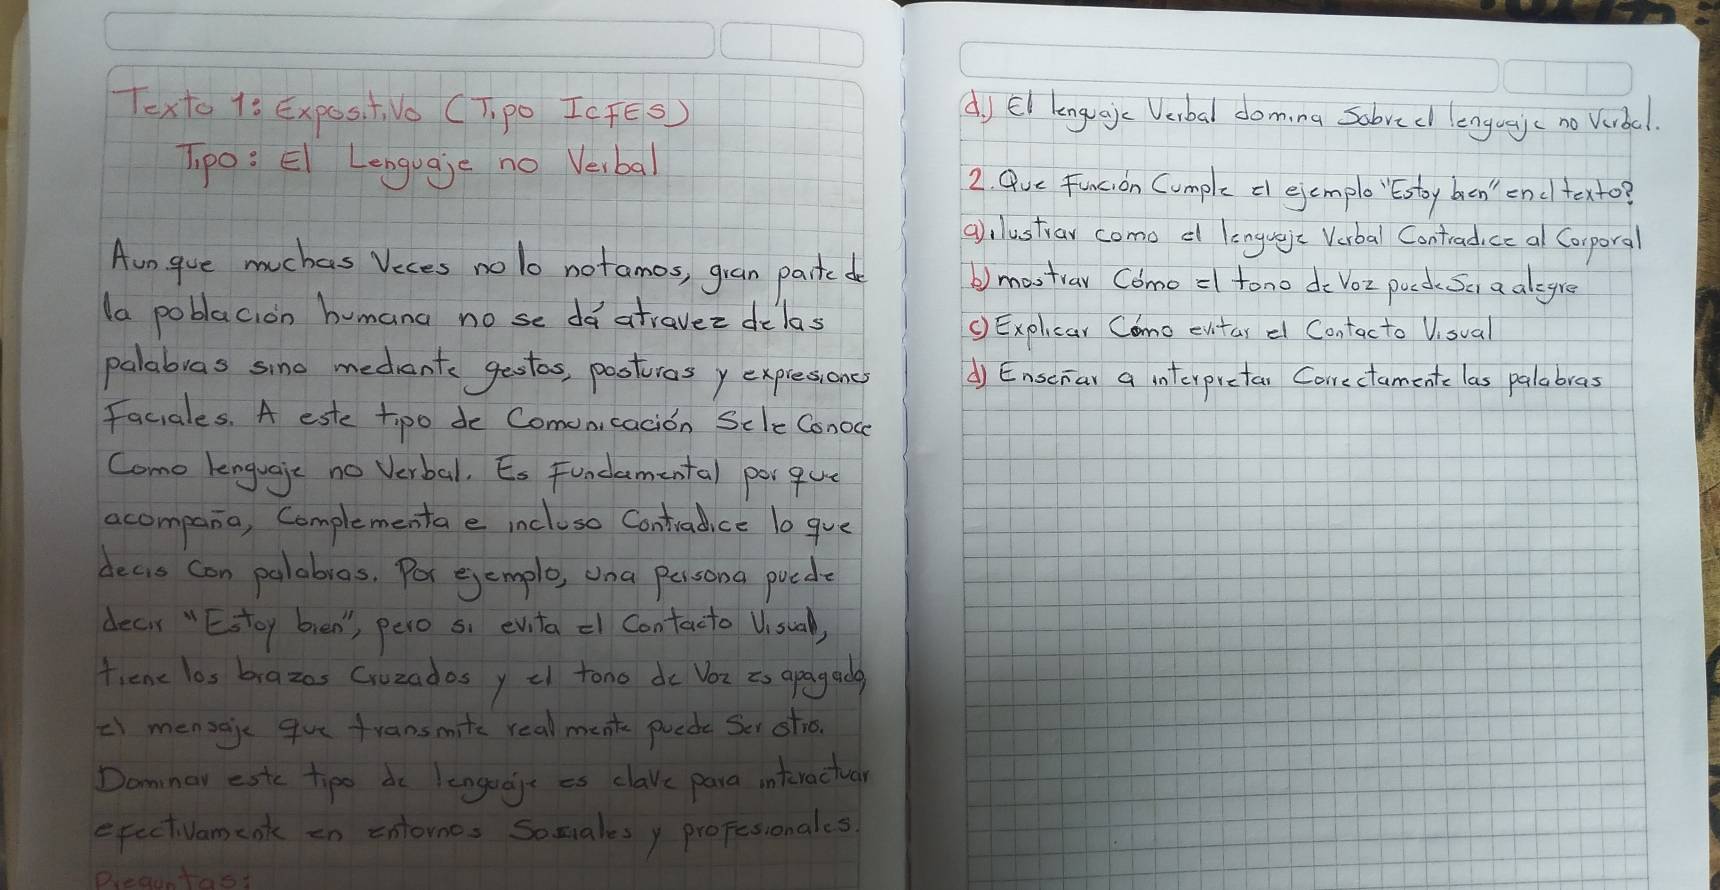 Texto 1: Expositivo (Tipo ICFES)
Tipo: El Lenguaje no Verbal
Aunque muchas Veces no lo notamos, gran parte de
la poblacion humana no se dá atravez de las
palabras sino mediante gestos, posturas y expresiones
Faciales. A este tipo de Comunicación Se le Conoce
Como lenguaje no Verbal. Es Fundamental por que
acompaña, Complementa e incluso Contradice lo que
decis Con palabras. Por ejemplo, una persona puede
decir "Estoy bien", pero si evita el Contacto Visual,
tiene los brazos Cruzados y el tono de Voz es apagado,
el mensaje que transmite realmente puede Ser otro.
Dominar este tipo de lenguaje es clave para interactuar
efectivamente en entornos Sociales y profesionales.
Preguntas:
d.) El lenguaje Verbal domina Sobre el lenguaje no Verbal.
2. Que Función Cumple el ejemplo "Estoy bien" en el texto?
a) ilustrar como el lenguaje Verbal Contradice al Corporal
b) mostrar Cómo el tono de Voz puede Ser a alegre
c) Explicar Cómo evitar el Contacto Visual
d) Enseñar a interpretar Correctamente las palabras